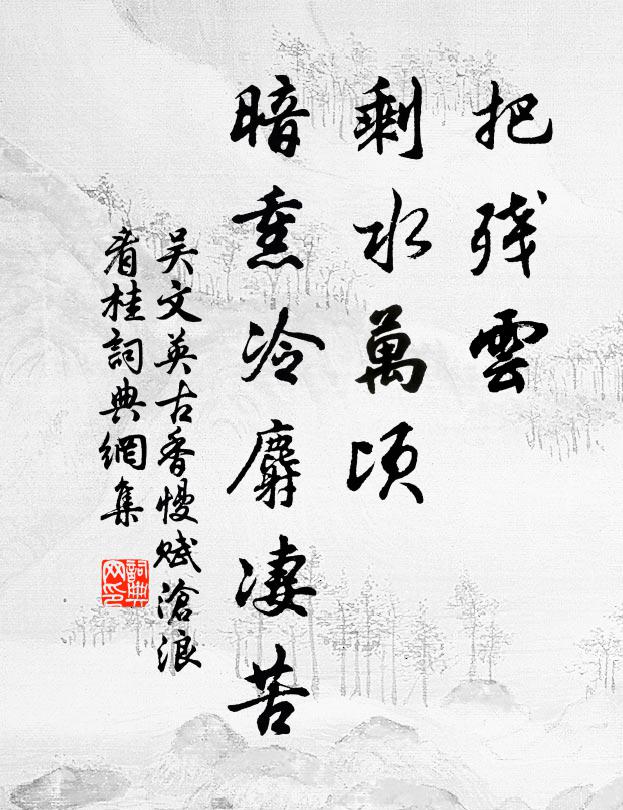 把残雲
剩水萬頃
暗熏冷麝凄苦
吴文英古香慢赋滄浪
看桂詞典網集
詞典
网印